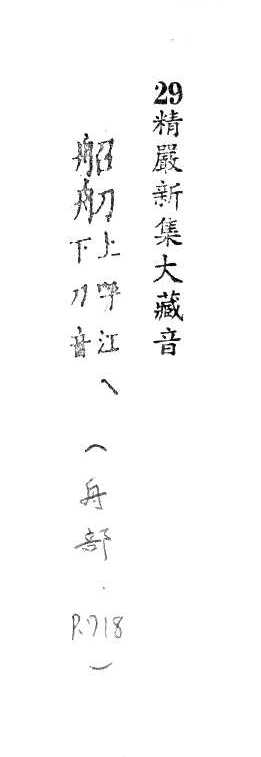 29精嚴新集大藏音
舠上呼江下刀音、(舟部.P.718)